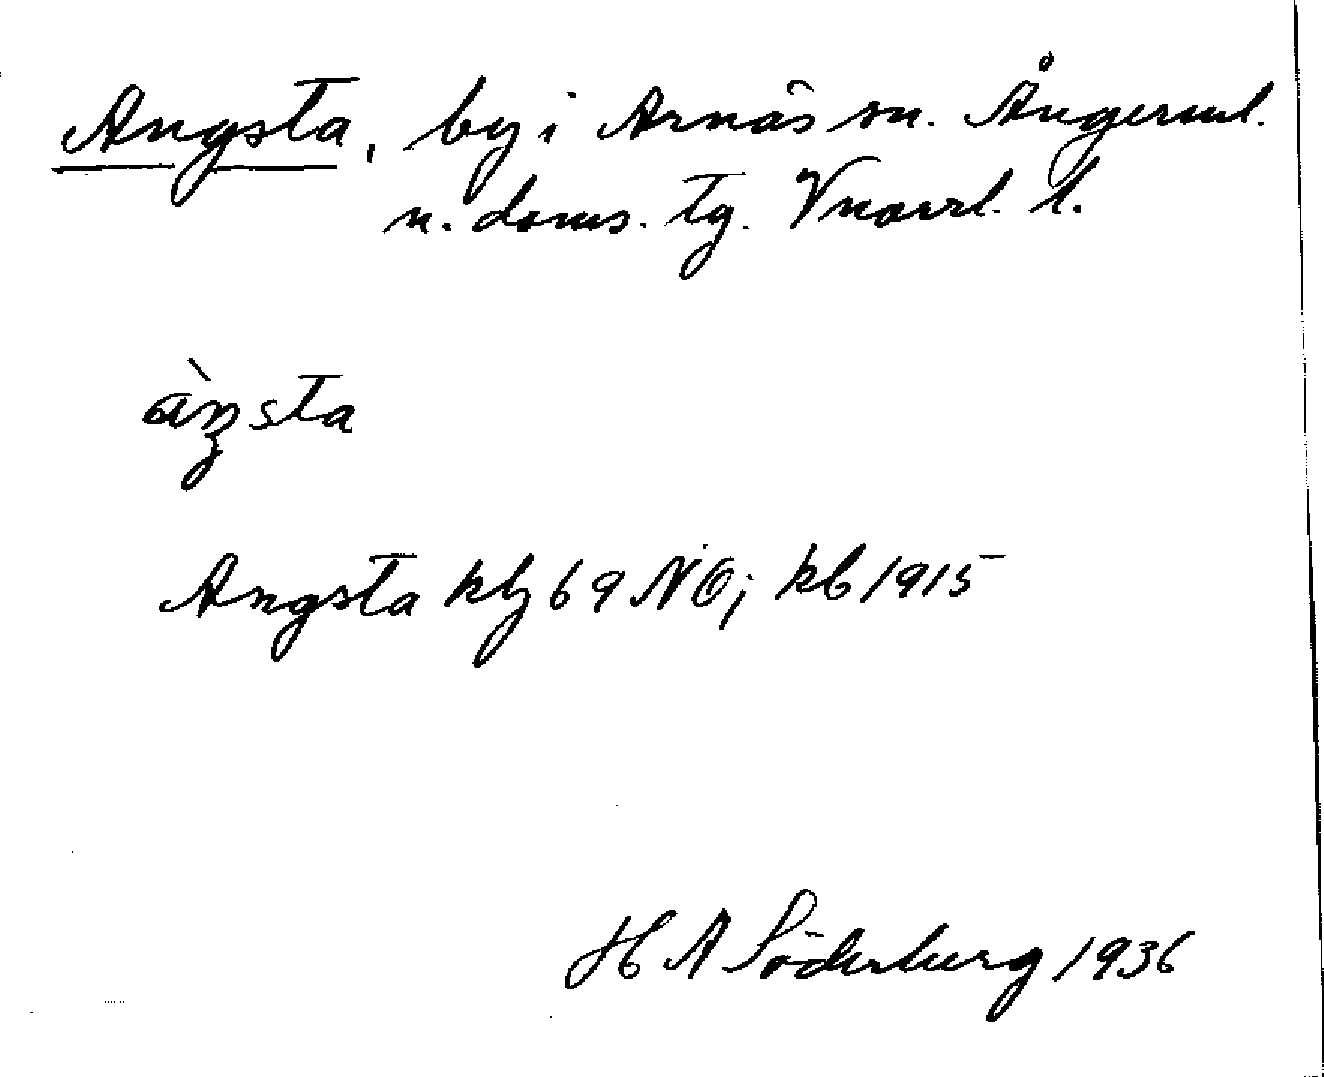 Angsta, by i Arnäs sn. Ångerml.
n. doms. tg. Vnorrl. l.
àŋsta
Angsta kbl 69 NÖ; kb 1915
H A Söderberg 1936